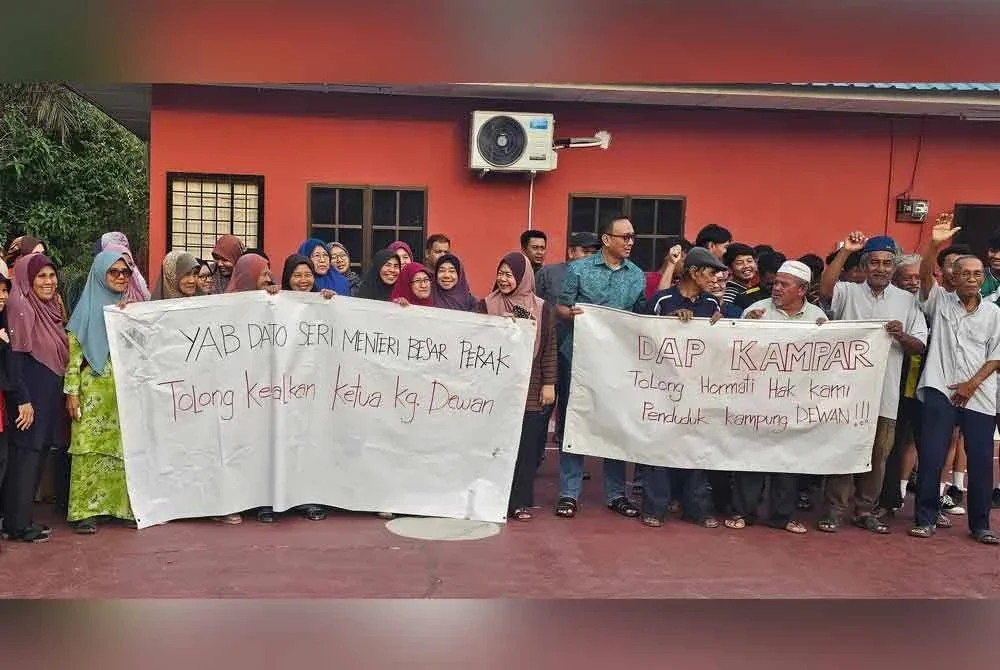 YAB DATO SERI MENTERI BESAR PERAK
Tolong Kekalkan Ketua kg. Dewan
DAP KAMPAR
Tolong Hormati Hak kami
Penduduk kampung DEWAN !!!